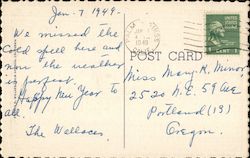 Jan. 7 1949.
We missed the
cold spell here and
now the weather
is perfect.
Happy New Year to
all.
The Wallaces
POST CARD
Miss Mary K. Minor
2520 N.E. 59 Ave
Portland (13)
Oregon.
1 CENT 1